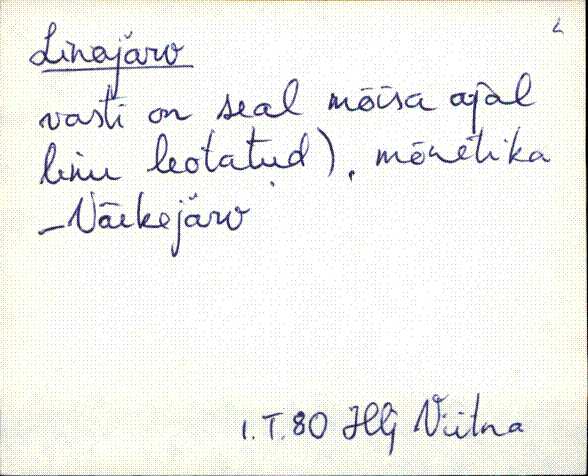 2
Linajärv
vasti on seal mõisa ajal
linu leotatud), mõnetika
- Väikejärv
1. T. 80 Hlj Viitna